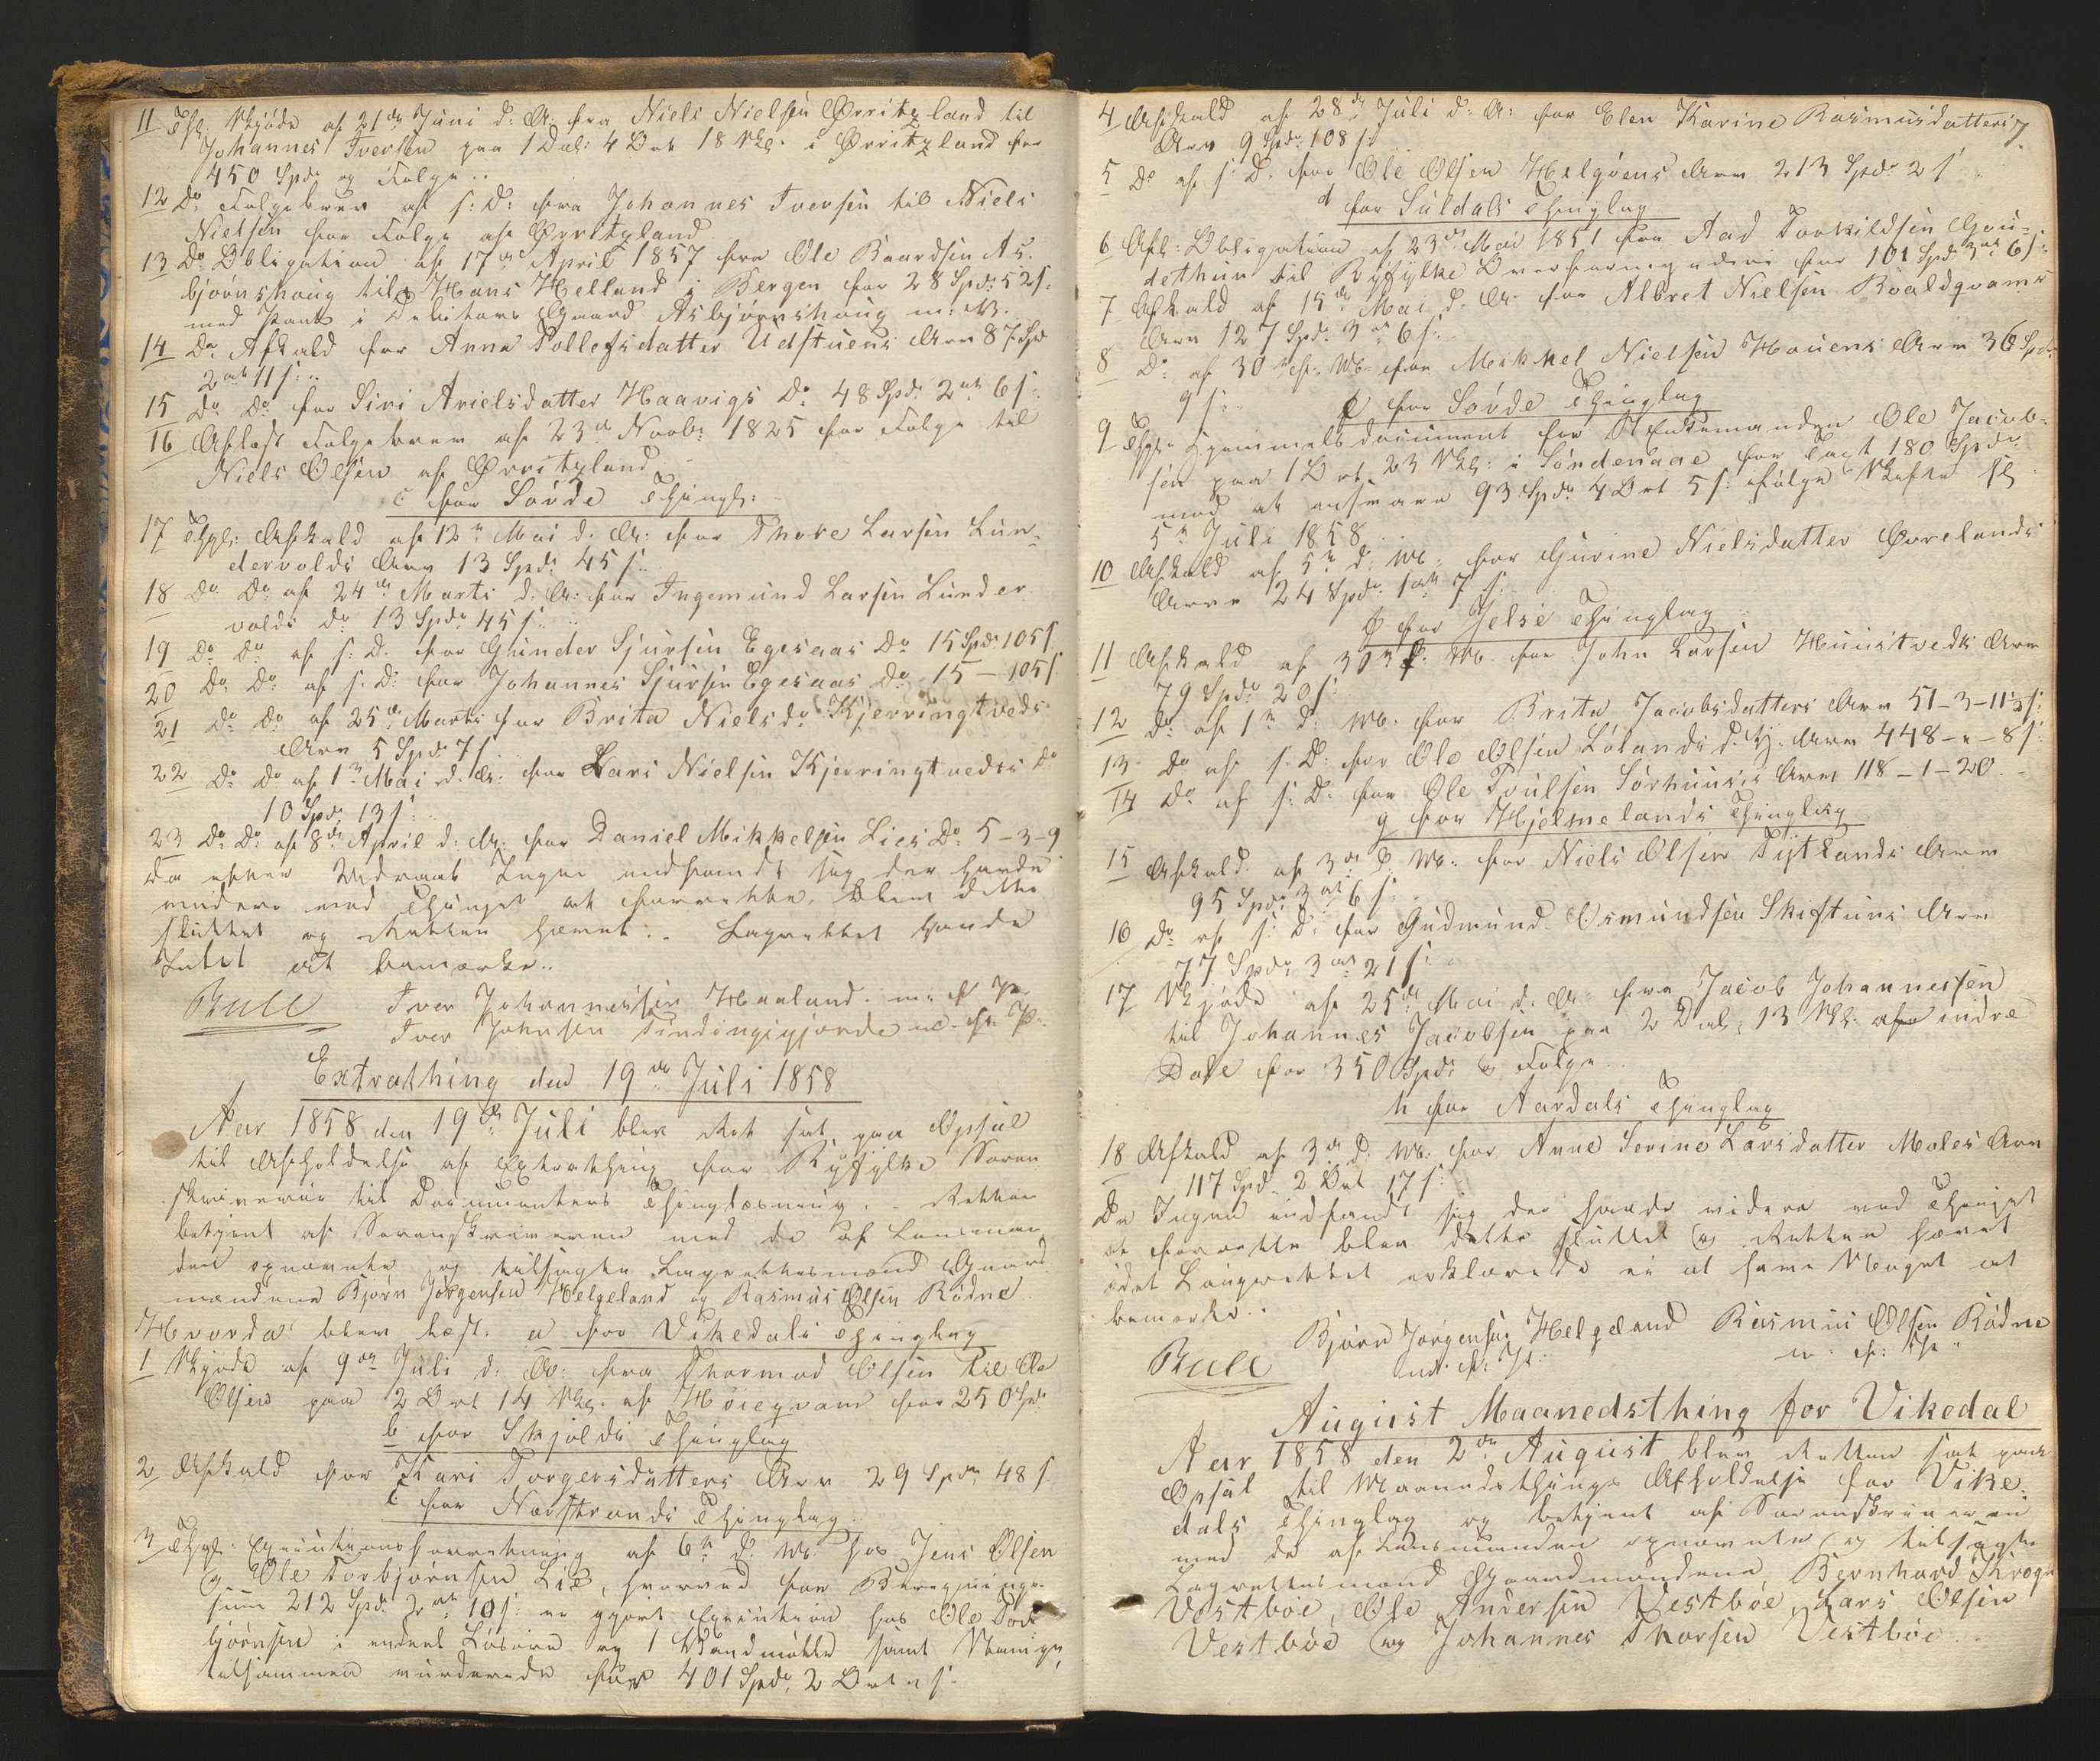 11 Thgl. Skjöde af 21de Juni d: A: fra Niels Nielsen Ørritzland til
Johannes Iversen paa 1 Dal: 4 Ort 18 Skl: i Ørritzland for
450 Spd: og Folge..
12 Do Folgebrev af s: D: fra Johannes Iversen til Niels
Nielsen for Folge af Ørritzland
13 Do Obligation af 17de April 1857 fra Ole Baardsen As-
bjørnshoug til Hans Helland i Bergen for 28 Spd: 52 s:
med Pant i Debitors Gaard Asbjørnshoug m: V.
14 Do Afkald for Anna Tollefsdatter Udstuens Arv 87 Spd
2 ort 11 s:..
15 Do Do for Siri Arielsdatter Haavigs Do 48 Spd: 2 ort 6 s:
16 Aflæst Folgebrev af 23de Novb: 1825 for Folge til
Niels Olsen af Ørritzland
c for Søvde Thingl:
17 Thgl: Afkald af 12te Mai d. A: for Thore Larsen Lun-
dervolds Arv 13 Spd: 45 s:
18 Do Do af 24de Marts d. A: for Ingemund Larsen Lunder
volds Do 13 Spd: 45 s:
19 Do Do af s: D. for Gunder Sjursen Egesaas Do 15 Spd: 105 s
20 Do Do af s: D: for Johannes Sjursen Egesaas Do 15 – 105 s
21 Do Do af 25de Marts for Brita Nielsdr Kjerringtveds
Arv 5 Spd: 7 s
22 Do Do af 1te Mai d. A: for Lars Nielsen Kjerringtveds Do
10 Spd: 13 s:
23 Do Do af 8de April d: A: for Daniel Mikkelsen Lies Do 5-3-9
Da efter Udraab Ingen indfandt sig der havde
videre med Thinget at forrette, blev dette
sluttet og Retten hævet. Lagrettet havde
Intet at bemærke..
Bull Iver Johannessen Haaland. m: f P.
Iver Johnsen Tindingigjorde m: f: P.
Extrathing den 19de Juli 1858
Aar 1858 den 19de Juli blev Ret sat paa Opsal
til Afholdelse af Extrathing for Ryfylke Soren
skriverie til Documenters Thinglæsning. Retten
betjent af Sorenskriveren med de af Lensman
den opnævnte og tilsagte Lagrettesmænd Gaard
mændene Bjørn Jørgensen Helgeland og Rasmus Olsen Rødne
Hvorda blev læst: a for Vikedals Thinglag
1 Skjøde af 9de Juli d: A: fra Thormod Olsen til Ole
Olsen paa 2 Ort 14 Skl. af Høieqvam for 250 Spd
b for Skjolds Thinglag
2 Afkald for Kari Torgersdatters Arv 29 Spd: 48 s.
c for Nærstrands Thinglag..
3 Thgl: Executionsforretning af 6te d. M. hos Jens Olsen
og Ole Torbjørnsen Lie, hvorved for Beregnings-
sum 212 Spd: 2 ort 10 s: er gjort Execution hos Ole Tor
bjørnsen i endeel Løsøre og 1 Vandmølle samt
tilsammen vurderede for 401 Spd: 2 Ort " s.
4 Afkald af 28de Juli d: A: for Elen Karine Rasmusdatters
Arv 9 Spd: 108 s:
7.
5 Do af s: D. for Ole Olsen Helgøens Arv 213 Spd: 2 s
d for Suldals Thinglag
6 Afl: Obligation af 23de Mai 1851 fra Aad Torkildsen Gou-
dethun til Ryfylke Overformynderi for 101 Spd: 3 ort 6 s:
7 Afkald af 15de Mai d. A: for Albret Nielsen Roaldqvams
Arv 127 Spd: 3 ort 6 s:
8 Do af 30te f: M: for Mikkel Nielsen Houens Arv 36 Spd:
9 s:
e for Søvde Thinglag
9 Thgl: Hjemmelsdocument for Enkemanden Ole Jacob-
sen paa 1 Ort 23 Skl: i Søndenaae for Taxt 180 Spd:
mod at udsvare 93 Spd: 4 Ort 5 s: ifølge Skifte sl
5te Juli 1858
10 Afkald af 5te d: M: for Gurine Nielsdatter Øverlands
Arv 24 Spd: 1 ort 7 s.
f for Jelse Thinglag
11 Afkald af 30te f: M. for John Larsen Huustvedts Arv
79 Spd: 20 s:
12 Do af 1te d: M. for Brita Jacobsdatters Arv 51-3-11½ s:
13 Do af s: D: for Ole Olsen Lølands d. Y: Arv 448-"-8 s:
14 Do af s: D: for Ole Poulsen Sørhuus's Arv 118-1-20
g for Hjelmelands Thinglag
15 Afkald af 3de d. M: for Niels Olsen Tytlands Arv
95 Spd: 3 ort 6 s:
16 Do af s: D: for Gudmund Osmundsen Skiftuns Arv
77 Spd: 3 ort 21 s:
17 Skjøde af 25de Mai d. A: fra Jacob Johannessen
til Johannes Jacobsen paa 2 Dal: 13 Skl. af indre
Dale for 350 Spd: og Folge..
h for Aardals Thinglag
18 Afkald af 3de d. M. for Anne Serine Larsdatter Moles Arv
117 Spd. 2 Ort 17 s:
Da Ingen indfandt sig der havde videre ved Thinget
at forrette blev dette sluttet og Retten hævet
idet Laugrettet erklærede ei at have Noget at
bemærke..
Bull Bjørn Jørgensen Helgeland Rasmus Olsen Rødne
m: f: P: m: f: P:
August Maanedsthing for Vikedal
Aar 1858 den 2de August blev Retten sat paa
Opsal til Maanedsthings Afholdelse for Vike-
dals Thinglag og betjent af Sorenskriveren
med de af Lensmanden opnævnte og tilsagte
Lagrettesmænd Gaardmændene Bernhard Krogh
Vestbøe, Ole Andersen Vestbøe, Lars Olsen
Vestbøe og Johannes Thorsen Vestbøe